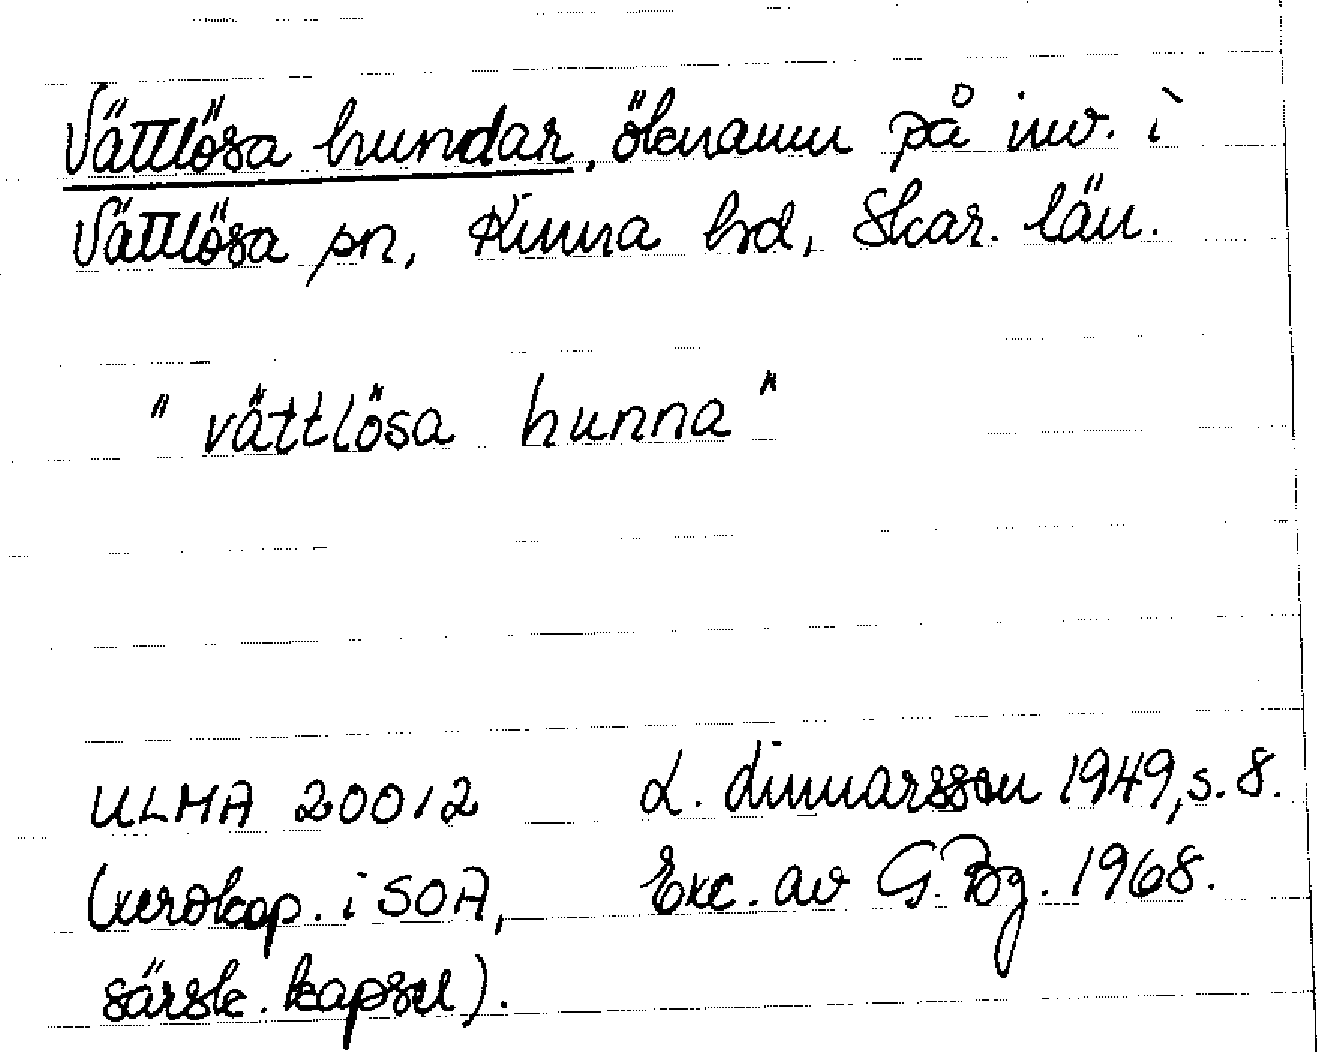 Vättlösa hundar, öknamn på inv. i
Vättlösa sn, Kinna hd, Skar. län.
" vättlösa hunna "
ULMA 20012 L. Linnarsson 1949, s. 8.
(xerokop. i SOA, Exc. av G. Bg. 1968.
särsk. kapsel).